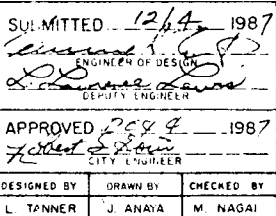 SUBMITTED 12/4 1987
ENGINEER OF DESIGN
L. Lawrence Lewis
DEPUTY ENGINEER
APPROVED Dec 4 1987
Robert S
CITY ENGINEER
DESIGNED BY DRAWN BY CHECKED BY
L. TANNER J. ANAYA M. NAGAI